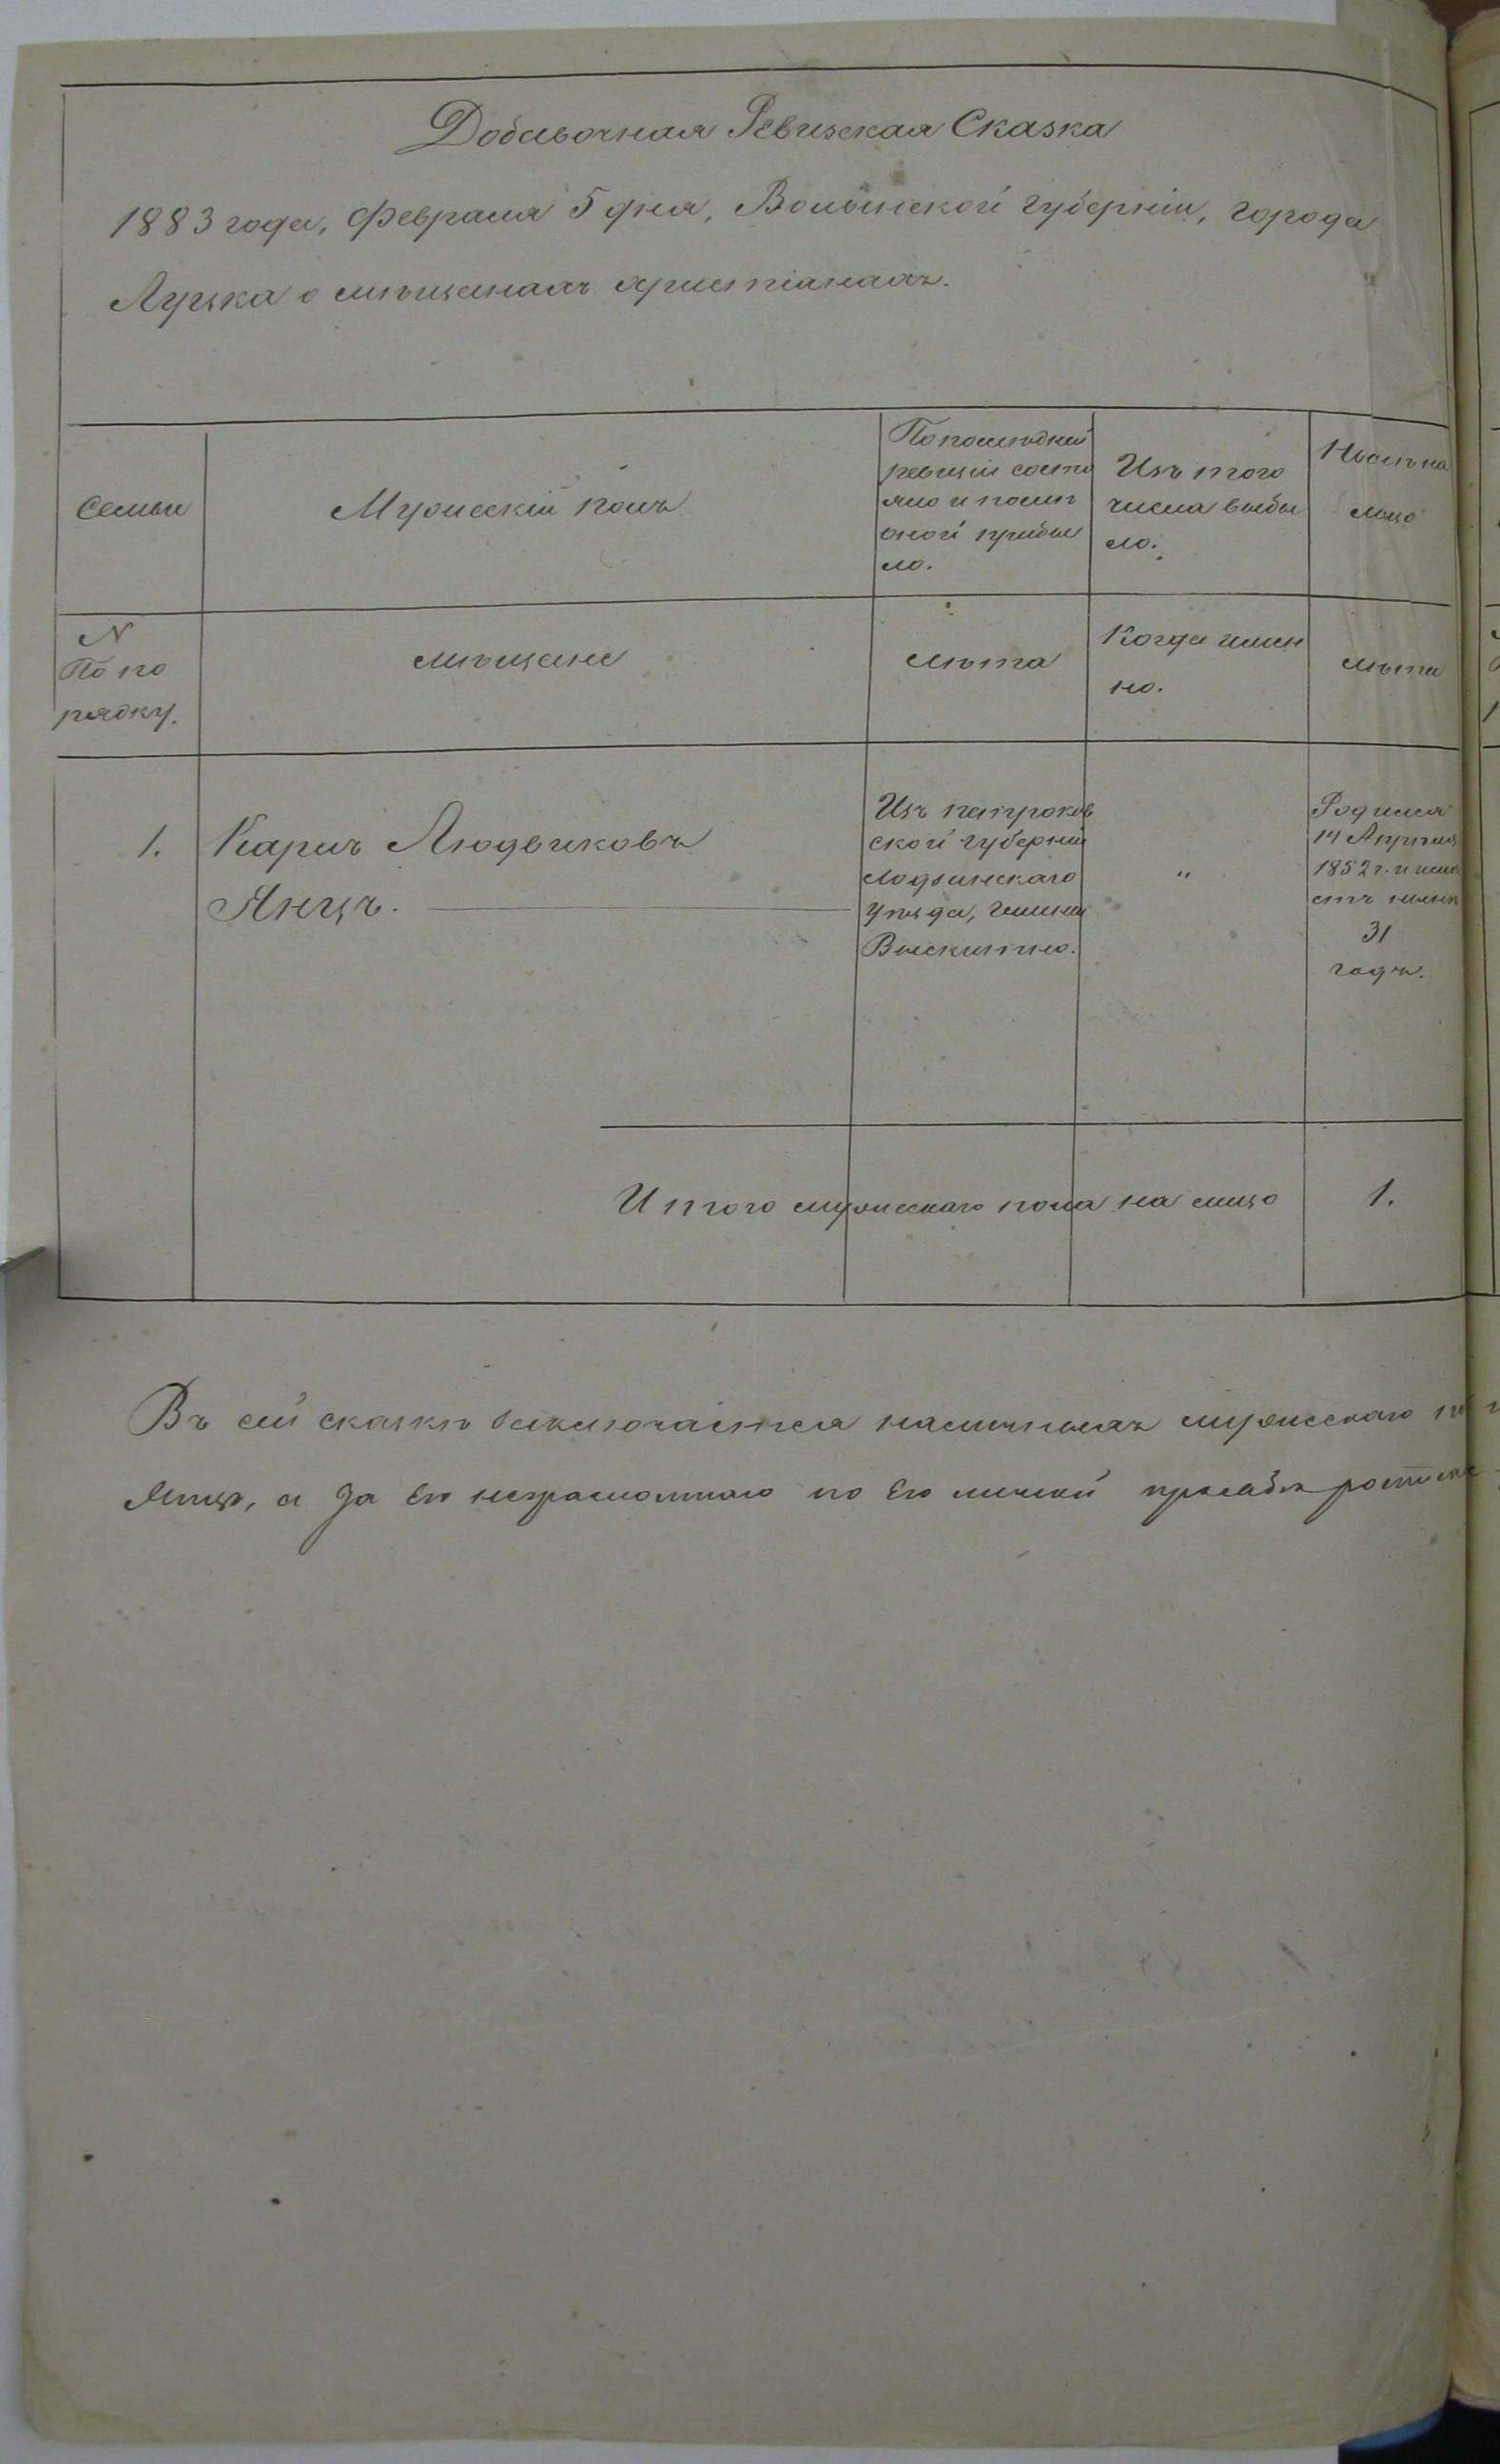 Добавочная Ревизская Сказка
1883 года, Февраля 5 дня, Волынской губерніи, города
Луцка о мѣщанахъ христіанахъ.
Семьи
Мужескій полъ
По послѣдней
ревизіи состо
яло и послѣ
оной прибы
ло.
Изъ того
числа выбы
ло.
Нынѣ на
лицо
N
По по
рядку.
мѣщане
лѣта
Когда имен
но.
лѣта
1.
Карлъ Людвиковъ
Янцъ.
Изъ петроков
ской губерніи
лодзинскаго
уѣзда, гмины
Выскитно.
"
Родился
14 Апрѣля
1852 г. и имѣ
етъ нынѣ
31
годъ.
Итого мужескаго пола на лицо
1.
Въ сей сказкѣ заключается мужескаго
Янцъ, а за его неграмотнаго по его личной просьбѣ